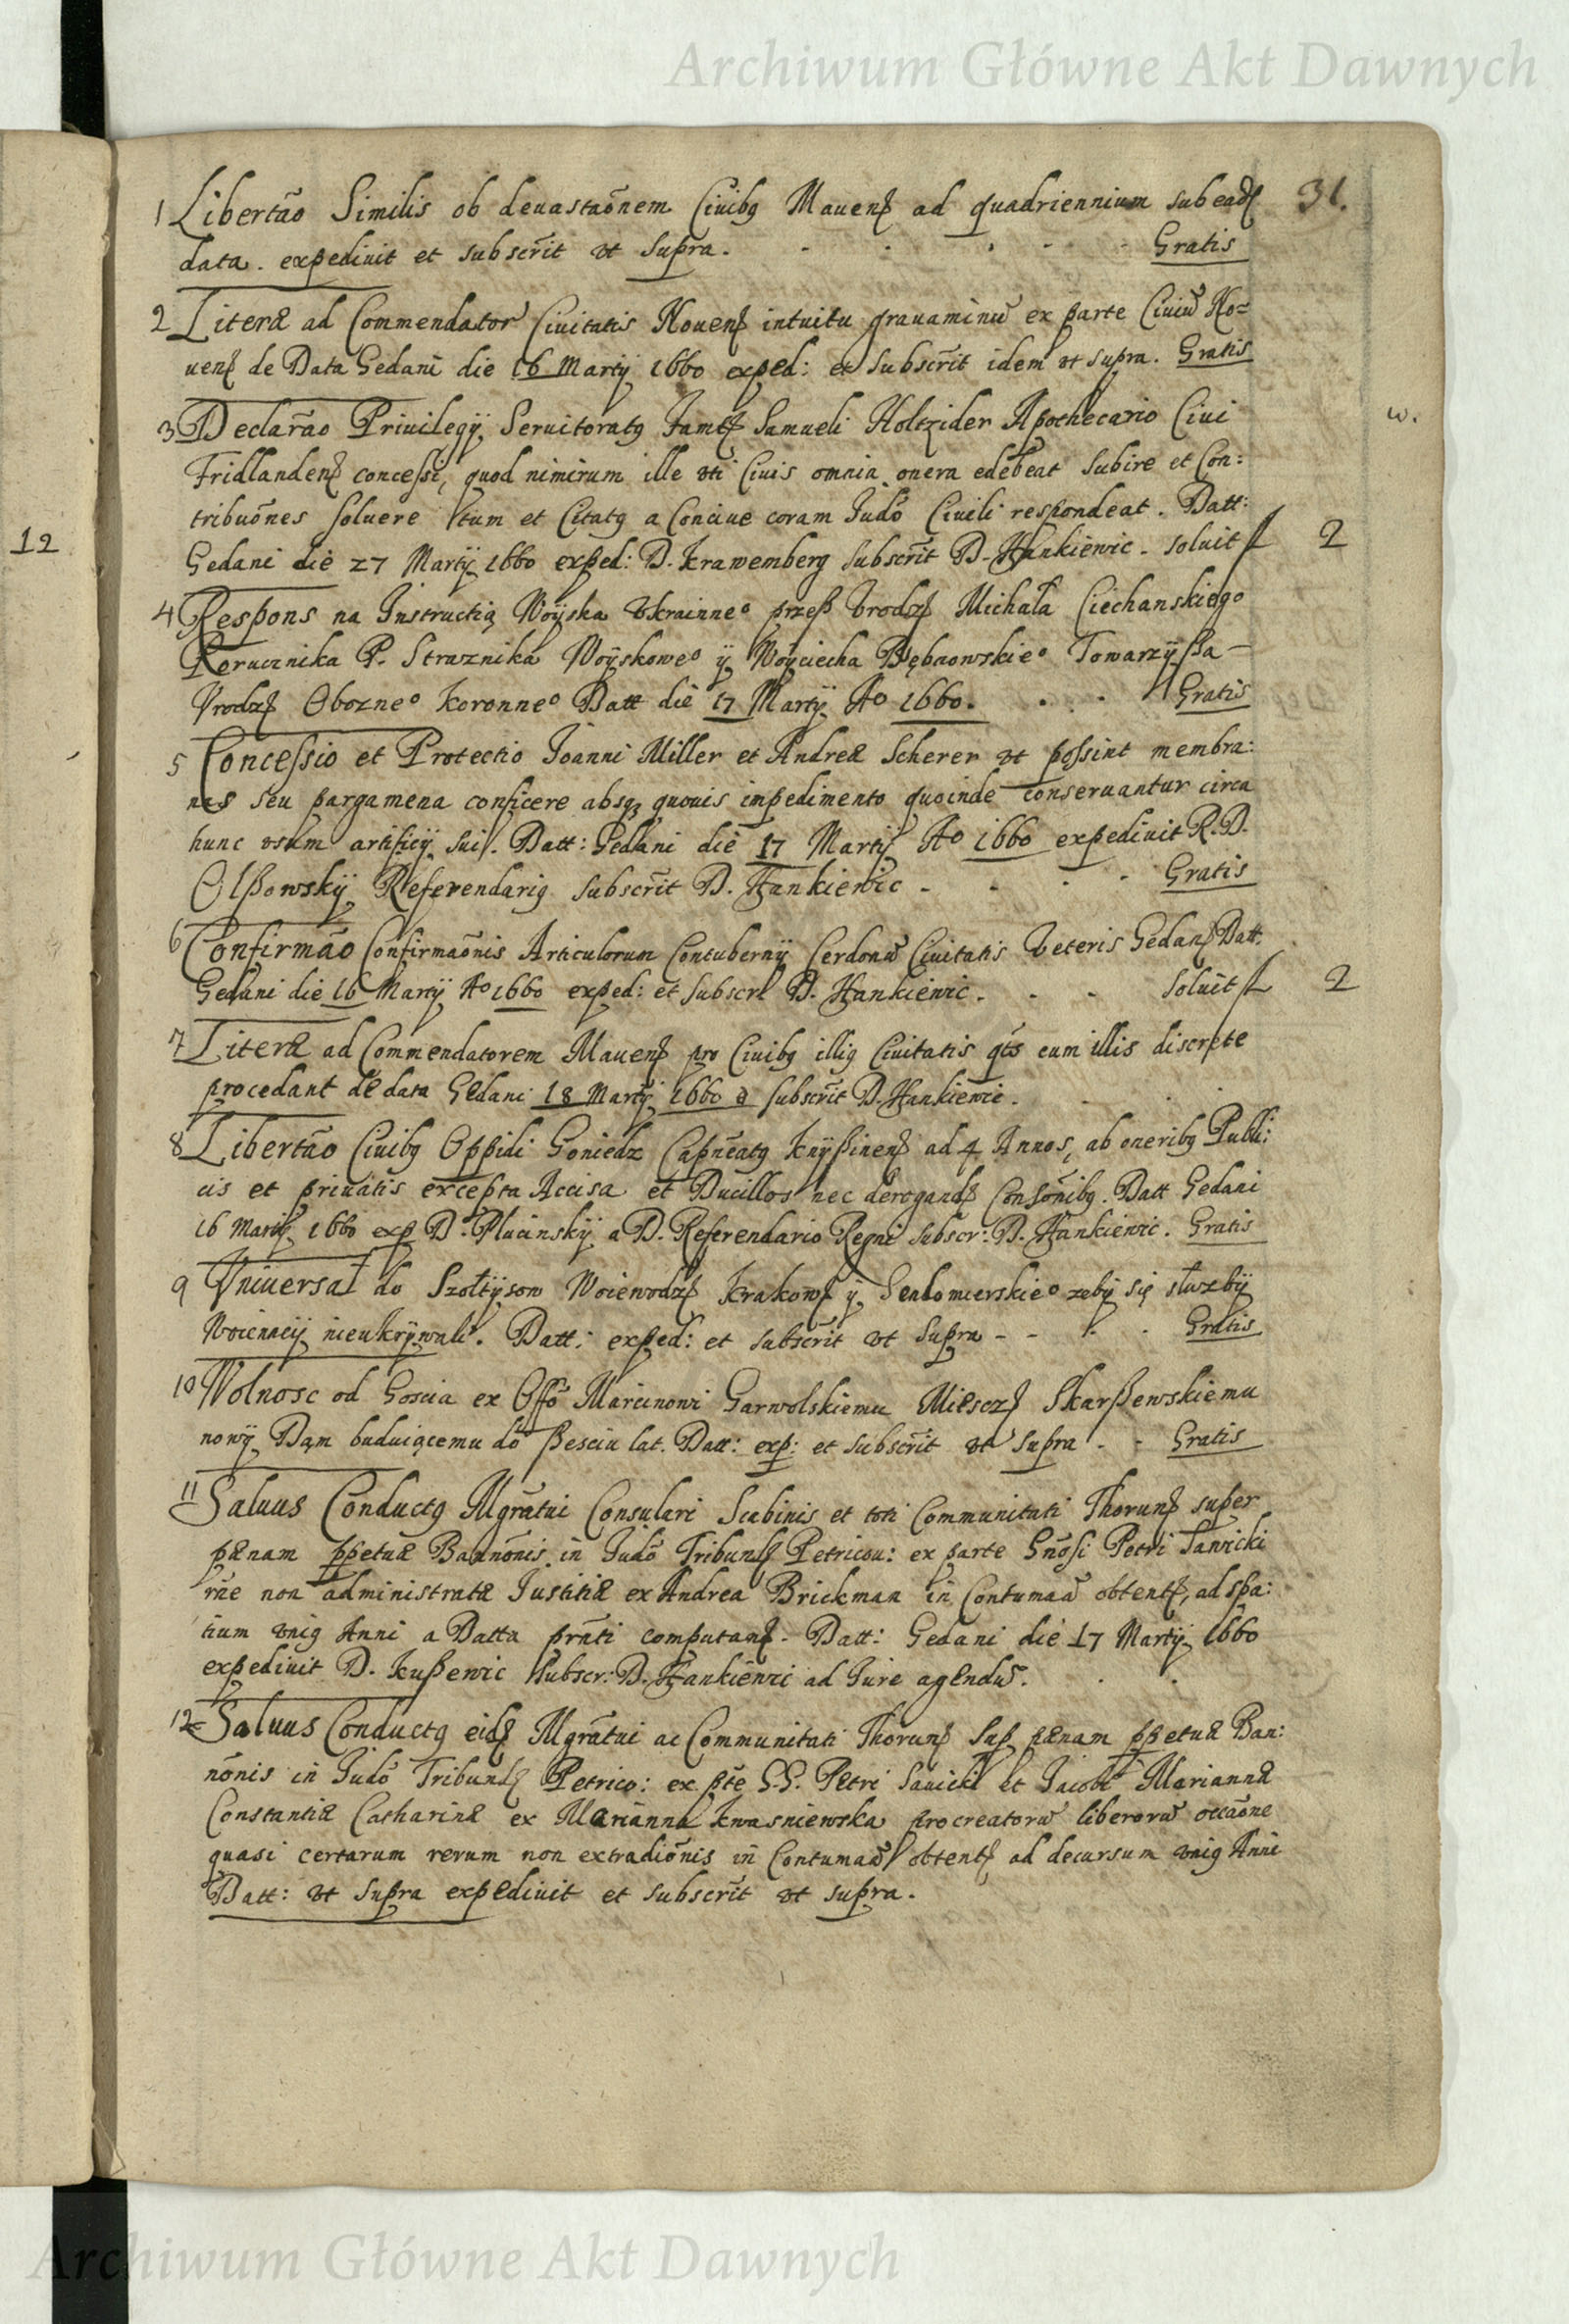 Archiwum Główne Akt Dawnych
31.
1 Libertão Similis ob deuastaõnem Ciuibꝯ Mauenʃ ad quadriennium sub eadʃ
data. expediuit et subscr̃it vt supra. Gratis
2 Literæ ad Commendator Ciuitatis Nouenʃ intuitu grauaminũ ex parte Ciuiũ No=
uenʃ de Data Gedani die 16 Martÿ 1660 exped: et subscr̃it idem vt supra. Gratis
3 Declarão Priuilegÿ Seruitoratꝯ Samueli Holtzider Apothecario Ciui
w.
Fridlandenʃ concessi, quod nimirum ille vti Ciuis omnia onera edebeat subire et Con:
tribuõnes soluere tum et Citatꝯ a Conciue coram Judõ Ciuili respondeat. Datt:
12
Gedani die 27 Martÿ 1660 exped: D. Krawemberg subscr̃it D. Hankiewic - soluit f 2
4 Respons na Instructią Woÿska Vkrainneo przeß Vrodzʃ Michała Ciechanskiego
Porucznika P. Straznika Woÿskoweo ÿ Woÿciecha Towarzÿßa
Vrodzʃ Obozneo Koronneo Datt die 17 Martÿ Ao 1660. Gratis
5 Concessio et Protectio Joanni Miller et Andreæ Scherer vt possint membra:
nas seu pargamena conficere absqꝫ quouis impedimento quoinde conseruantur circa
hunc vsum artificÿ sui. Datt: Gedani die 17 Martÿ Ao 1660 expediuit R. D.
Olßowskÿ Referendariꝯ subscr̃it D. Hankiewic - Gratis
6 Confirmão Confirmaõnis Articulorum Contubernÿ Cerdonũ Ciuitatis Veteris Gedanʃ Datt.
Gedani die 16 Martÿ Ao 1660 exped: et subscr̃ D. Hankiewic. soluit f 2
7 Literæ ad Commendatorem Mauenʃ pro Ciuibꝯ illiꝯ Ciuitatis qt̃s cum illis discrete
procedant de data Gedani 18 Martÿ 1660 subscr̃it D. Hankiewic.
8 Libertão Ciuibꝯ Oppidi Goniedz Capñeatꝯ Knÿßinenʃ ad 4 Annos, ab oneribꝯ Publi:
cis et priuatis excepta Accisa et Ducillos nec derogandʃ Consõnibꝯ. Datt Gedani
16 Martÿ 1660 exp D. Plucinskÿ a D. Referendario Regni subscr: D. Hankiewic. Gratis
9 Vniuersał do Szołtÿsow Woiewodzʃ Krakowʃ ÿ Sendomierskieo zebÿ się słuzbÿ
Woiennÿ nieukrÿwali. Datt: exped: et subscr̃it vt supra - - Gratis
10 Wolnosc od Goscia ex Offõ Marcinowi Garwolskiemu Miesczʃ Skarßewskiemu
nowÿ Dąm buduiącemu do ßesciu lat. Datt: exp: et subscr̃it vt supra - - Gratis
11 Saluus Conductꝯ Mgrãtui Consulari Scabinis et toti Communitati Thorunʃ super
pænam ppetuæ Bannõnis in Judõ Tribunlʃ Petricou: ex parte Gnõsi Petri Sawicki
rñe non administratæ Justitiæ ex Andrea Brickman in Contumaã obtentʃ, ad spa:
tium vniꝯ Anni a Datta pñti computanʃ. Datt: Gedani die 17 Martÿ 1660
expediuit D. Kußewic subscr: D. Hankiewic ad Jure agendũ.
12 Saluus Conductꝯ eidʃ Mgrãtui ac Communitati Thorunʃ sup pænam ppetuæ Ban:
nõnis in Judõ Tribunlʃ Petrico: ex pte G.G. Petri Sauicki et Jacobi Mariannæ
Constantiæ Catharinæ ex Marianna Kwasniewska procreatorũ liberorũ occãone
quasi certarum rerum non extradiõnis in Contumaã obtentʃ ad decursum vniꝯ Anni
Datt: vt supra expediuit et subscr̃it vt supra.
Archiwum Główne Akt Dawnych